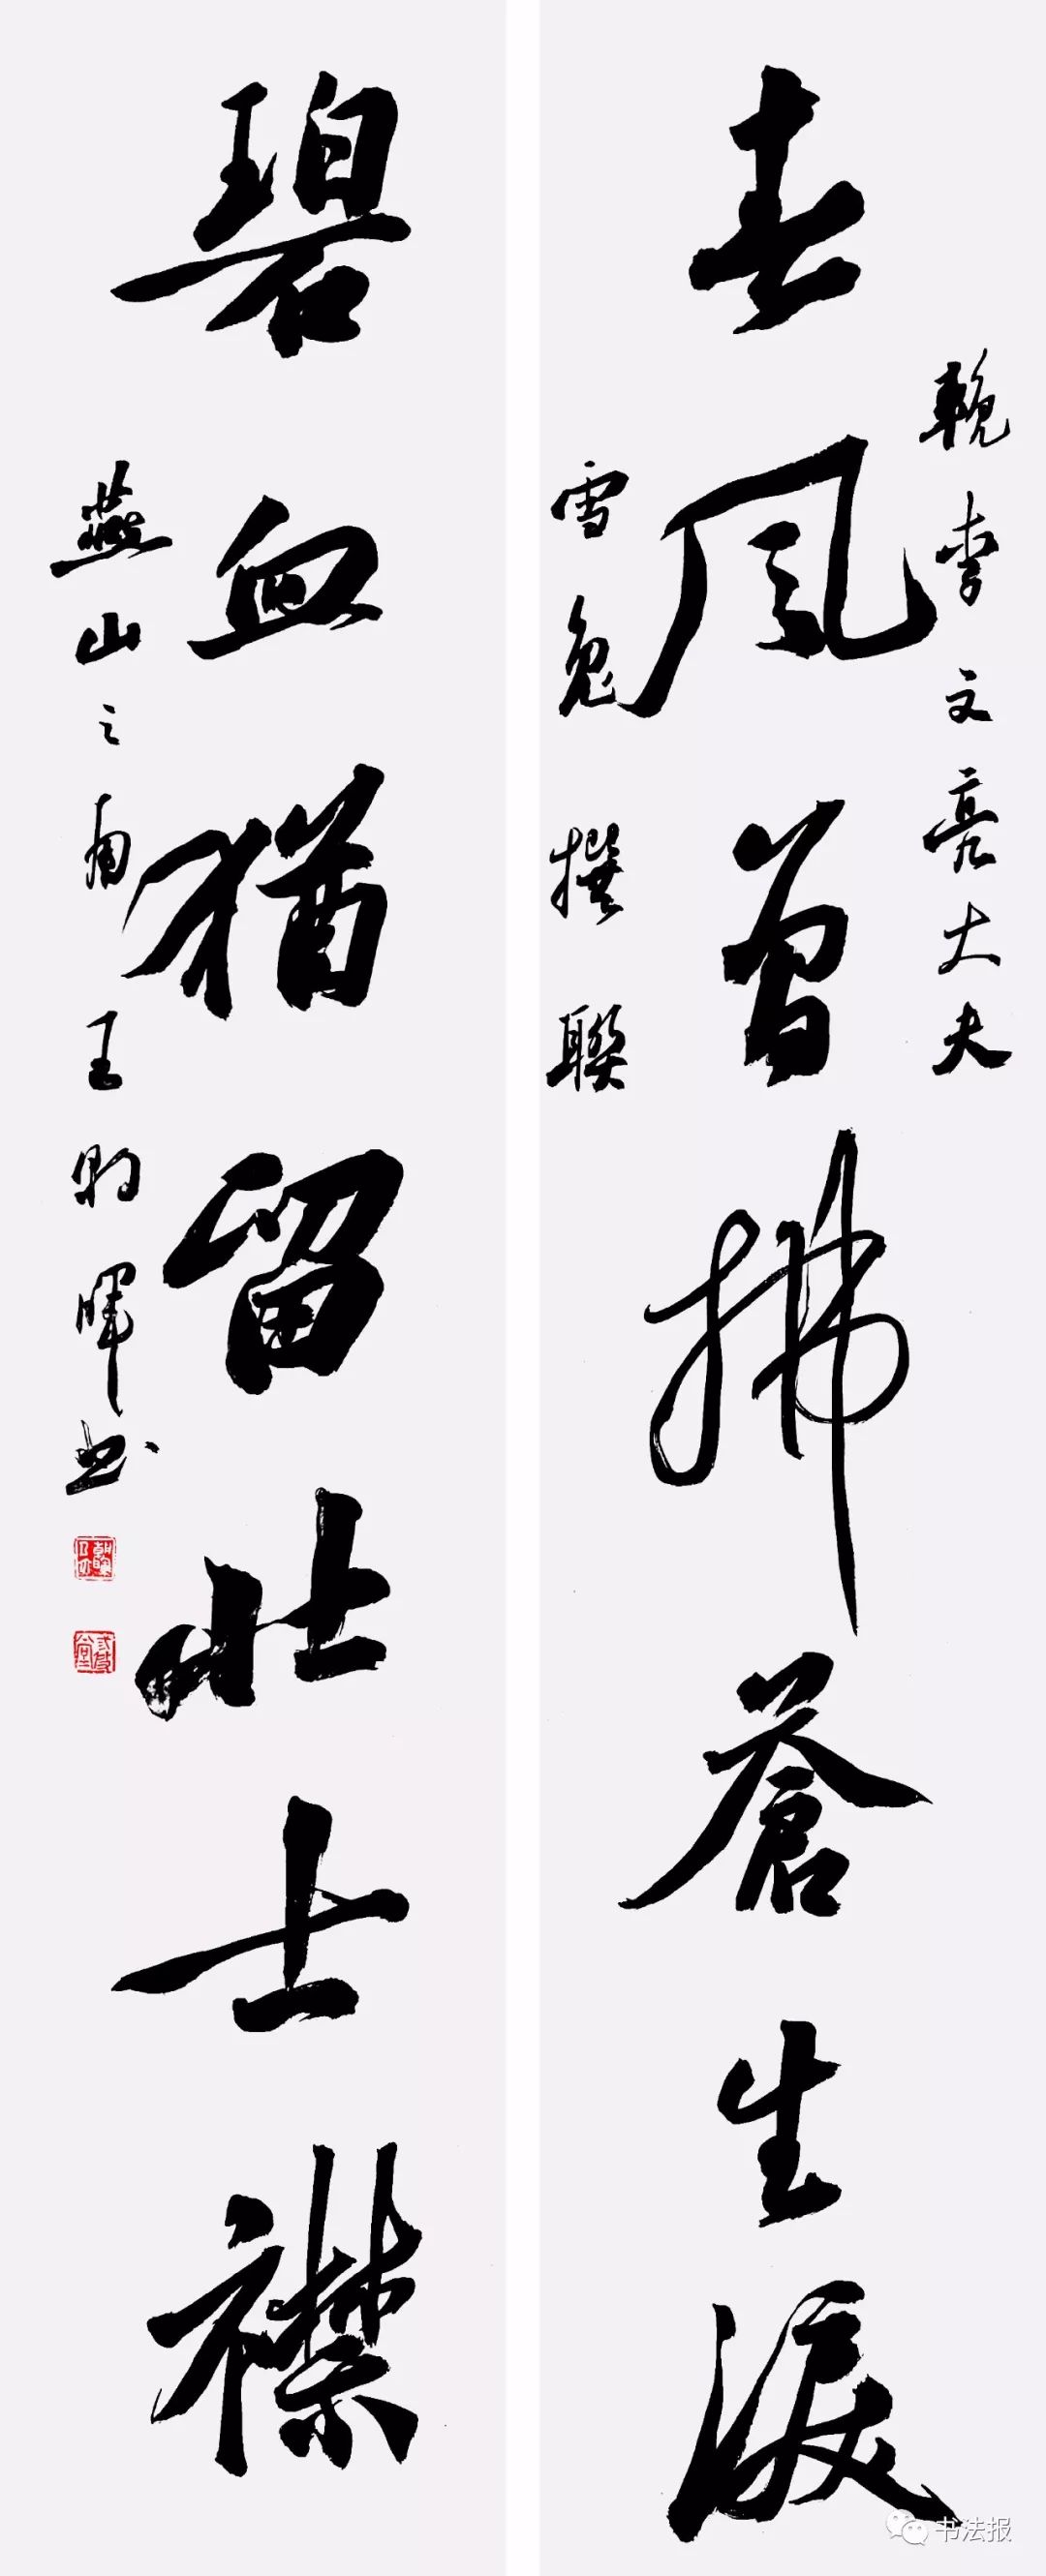 輓李文亮大夫
春風曾拂蒼生淚
雪兔撰聯
碧血猶留壯士襟
燕山之南王朝暉書
书法报